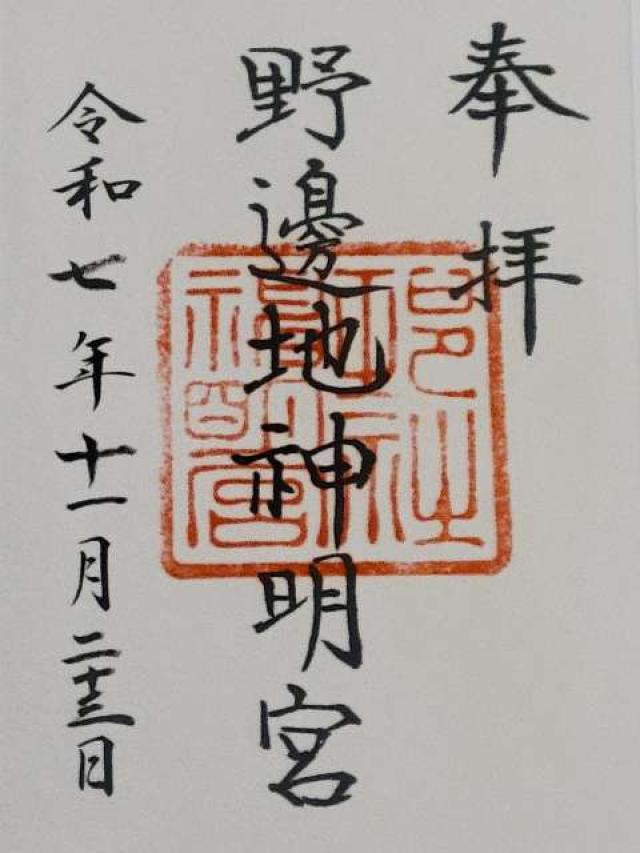 奉拝
野邊地神明宮
令和七年十一月二十三日